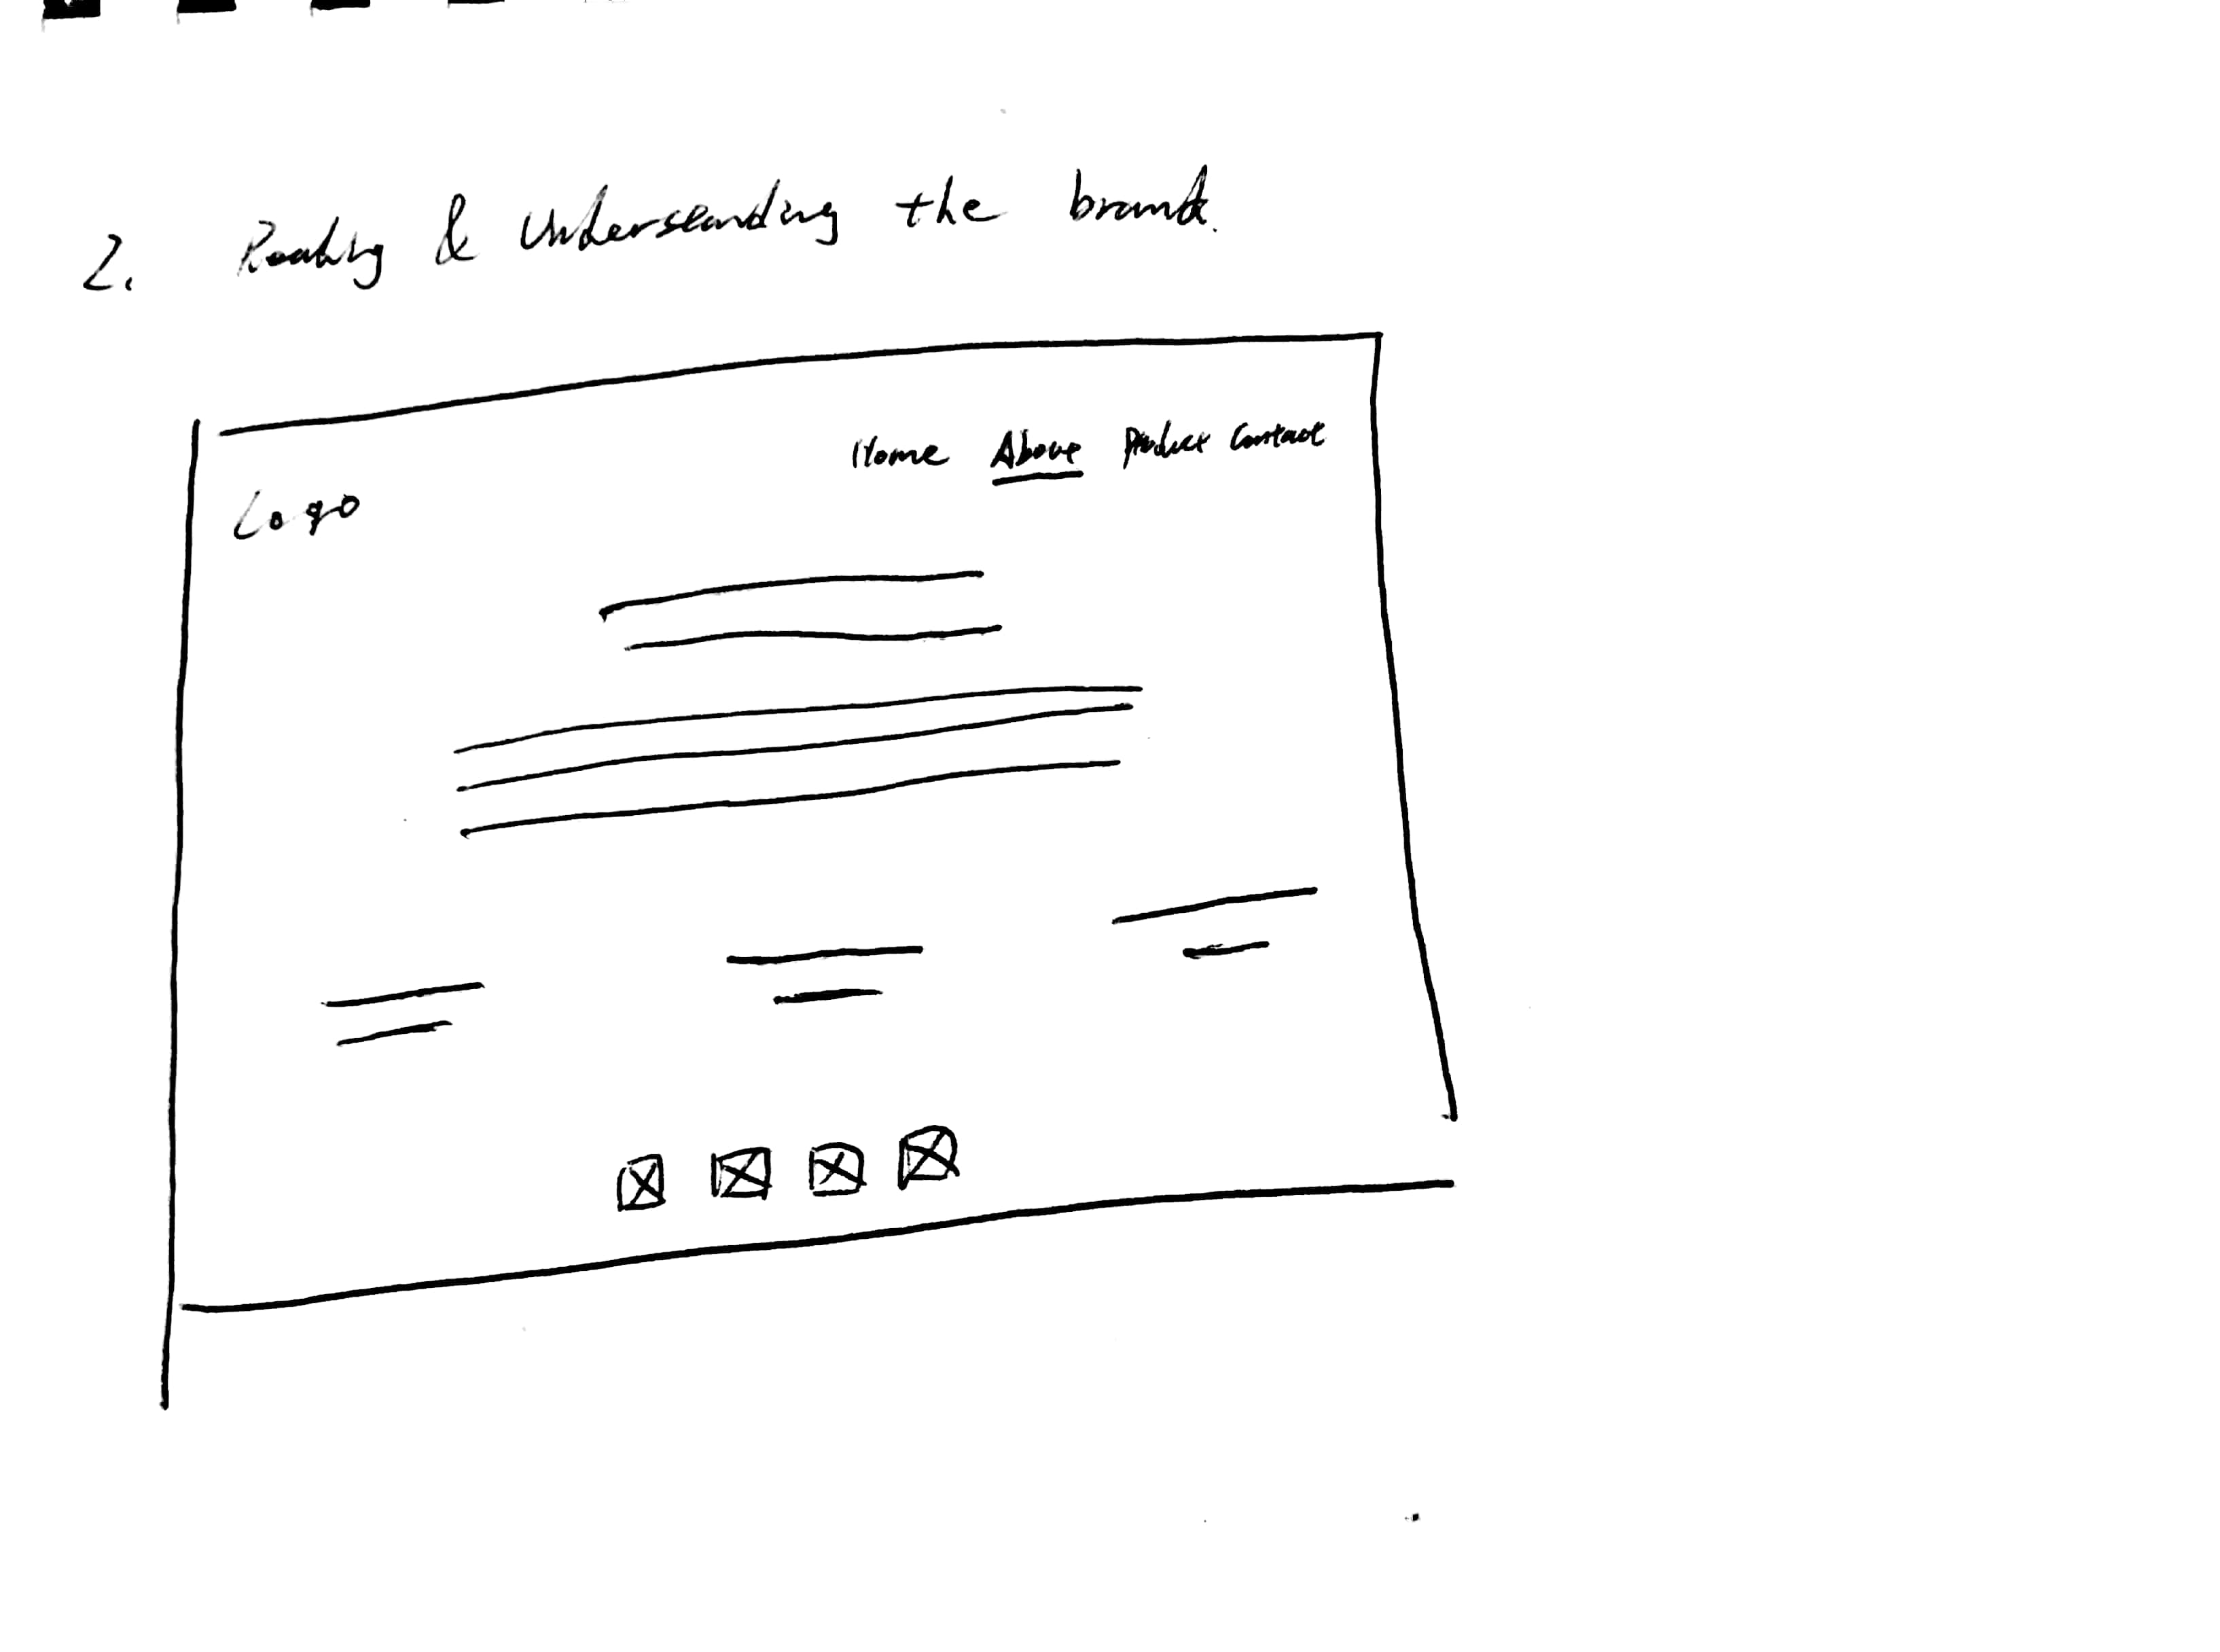 2. Reading & Understanding the brand.
Home About Product Contact
Logo